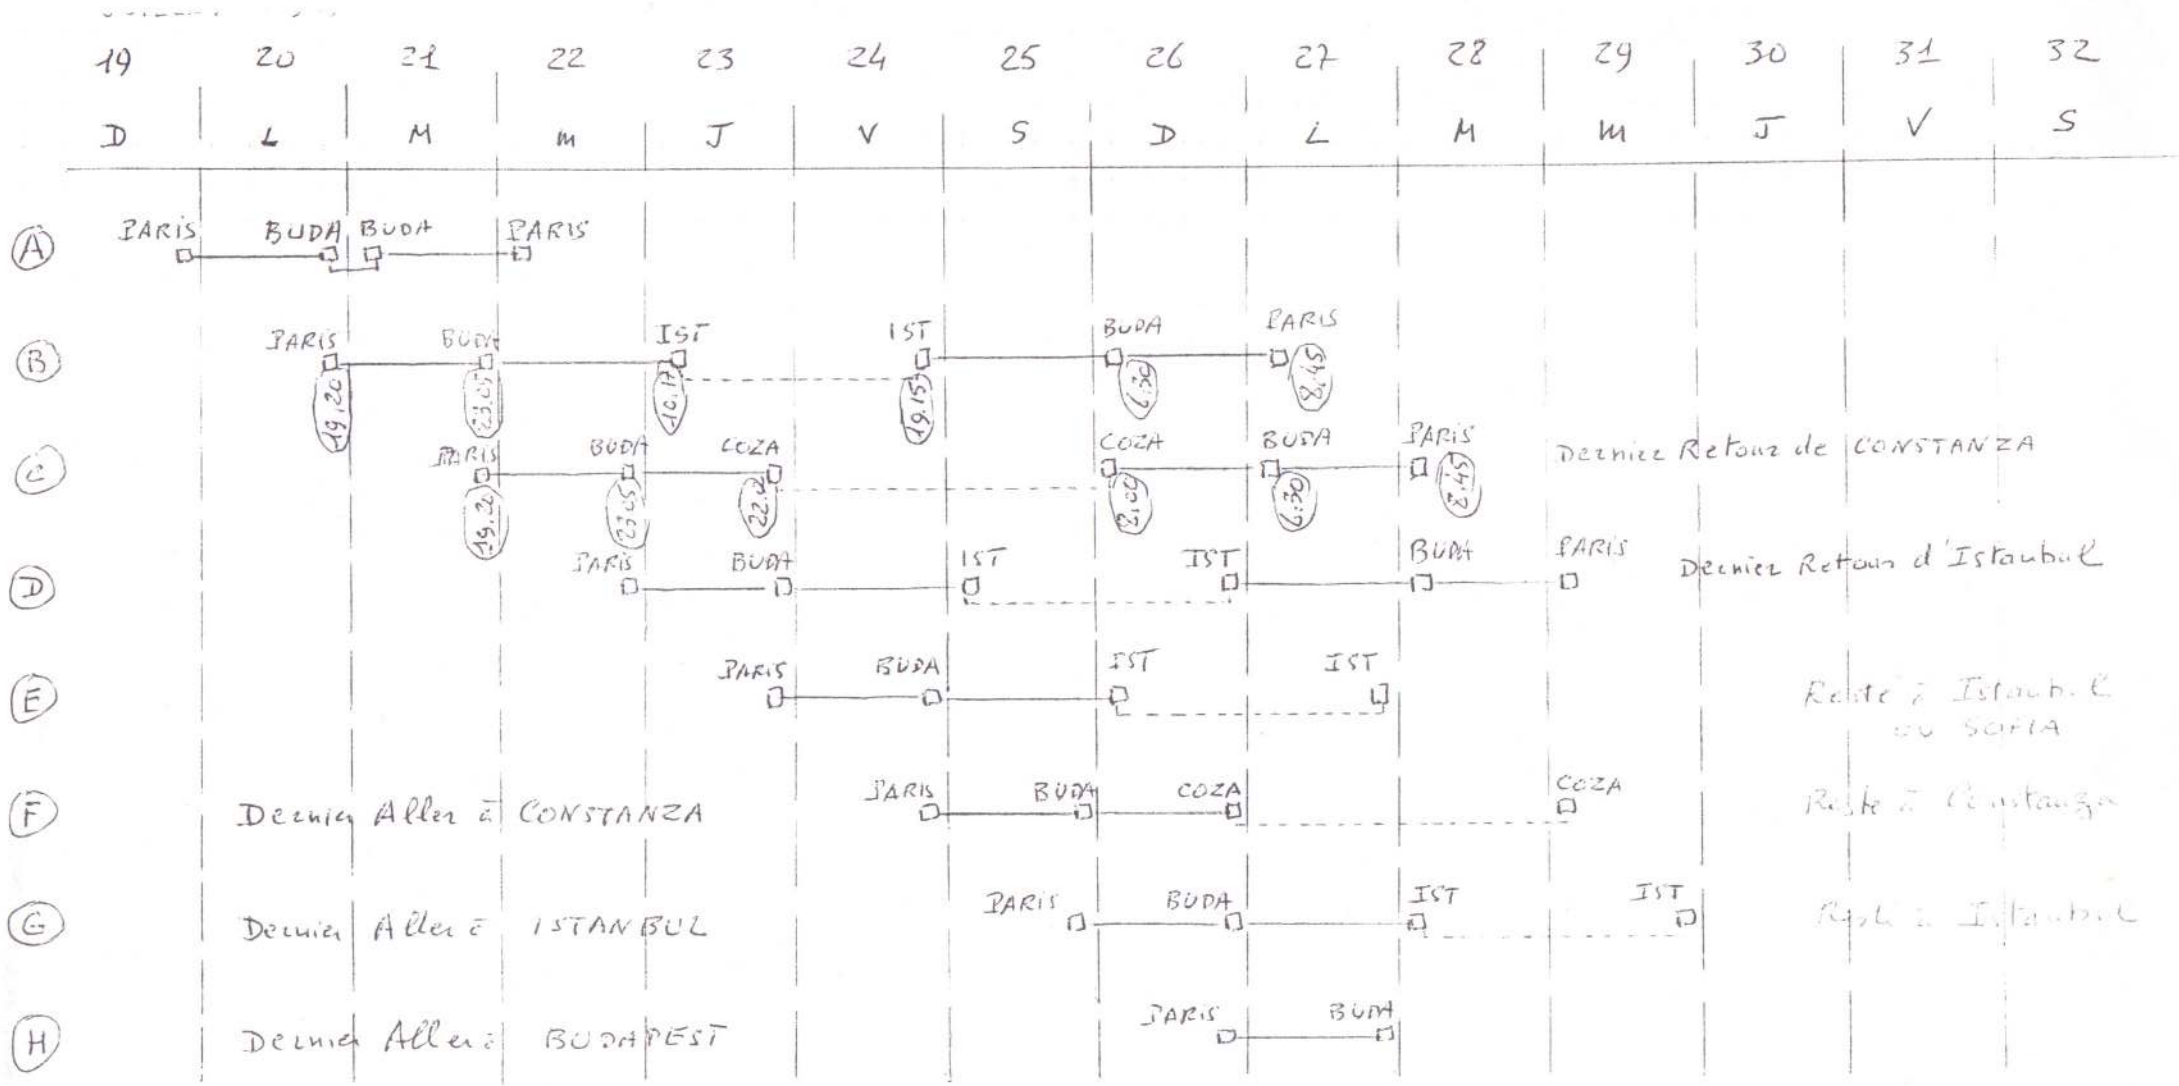 19 20 21 22 23 24 25 26 27 28 29 30 31 32
D L M m J V S D L M m J V S
A PARIS BUDA BUDA PARIS
B PARIS BUDA IST IST BUDA PARIS
19.20 23.05 10.17 19.15 6:30 8.45
C PARIS BUDA COZA COZA BUDA PARIS Dernier Retour de CONSTANZA
19.20 23.05 22.02 8.00 6:30 8.45
D PARIS BUDA IST IST BUDA PARIS Dernier Retour d'Istanbul
E PARIS BUDA IST IST Reste à Istanbul
OU SOFIA
F Dernier Aller à CONSTANZA PARIS BUDA COZA COZA Reste à Constanza
G Dernier Aller à ISTANBUL PARIS BUDA IST IST Reste à Istanbul
H Dernier Aller à BUDAPEST PARIS BUDA